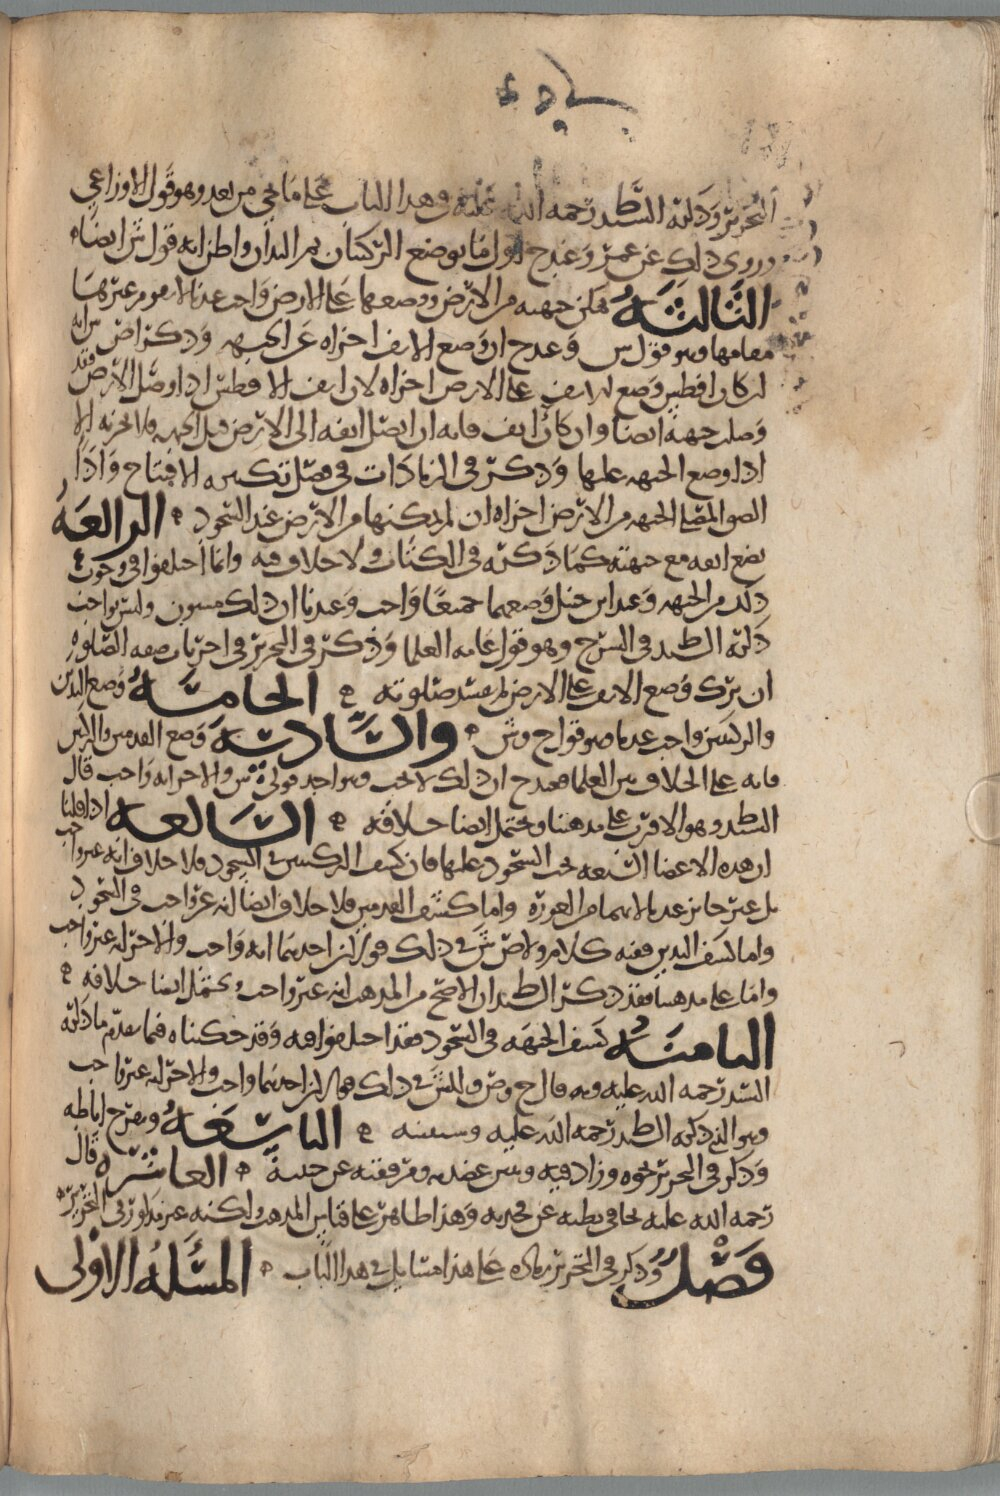 التحرير وذكره السيد رحمه الله في هذا الباب على ما يجي من بعد وهو قول الاوزاعي
وروي ذلك عن عمر وعند ح اول ما يوضع الركبتان ثم اليدان واظن انه قول ش ايضا
الثالثة تمكن جبهته من الارض ووضعها على الارض واجب عندنا لا يقوم غيرها
مقامها وهو قول س وعند ح ان وضع الانف اجزاه عن الجبهه وذكر اض س انه
لو كان افطس وضع الانف على الارض اجزاه لان انف الافطس اذا وصل الارض فقد
وصلت جبهته ايضا وان كان انف فانه ان اتصل انفه الى الارض قبل الجبهه فلا يجزيه الا
اذا وضع الجبهه عليها وذكر في الزيادات في فصل تكبيره الافتتاح واذا
الصق الجبهه من الارض اجزاه ان لم يمكنها من الارض عند السجود الرابعة
يضع انفه مع جبهته كما ذكره في الكتاب ولا خلاف فيه وانما اختلفوا في وجوب
ذلك من الجبهه وعند ابن حنبل وضعهما جميعا واجب وعندنا ان ذلك مسنون وليس بواجب
ذكره السيد ط في الشرح وهو قول عامه العلما وذكر في التحرير في اخر باب صفه الصلوه
ان ترك وضع الانف على الارض لم يفسد صلوته الخامسة وضع اليدين
والركبتين واجب عندنا وهو قول ح وش والسادسة وضع القدمين والركبتين
فانه على الخلاف بين العلما فعند ح ان ذلك لا يجب وهو احد قولي ش والاخر انه واجب قال
السيد ط وهو الاقرب على مذهبنا ويحتمل ايضا خلافه السابعة اذا قلنا
ان هذه الاعضا السبعه يجب السجود عليها فان كشف الركبتين في السجود فلا خلاف انه غير واجب
بل غير جايز عندنا لانهما من العوره واما كشف القدمين فلا خلاف ايضا انه غير واجب في السجود
واما كشف اليدين ففيه كلام ولاض ش في ذلك قولان احدهما انه واجب والاخر انه غير واجب
واما على مذهبنا فقد ذكر السيد ط ان الاصح من المذهب انه غير واجب ويحتمل ايضا خلافه
الثامنة كشف الجبهه في السجود فقد اختلفوا فيه وقد حكيناه فيما تقدم ما ذكره
السيد رحمه الله عليه وبه قال ح وص وللش في ذلك قولان احدهما واجب والاخر انه غير واجب
وهو الذي ذكره السيد ط رحمه الله عليه وسننه التاسعة ويفرج اباطه
وذكر في التحرير نحوه وزاد فيه وبين عضديه ومرفقيه عن جنبيه العاشرة قال
رحمه الله عليه يجافي بطنه عن فخذيه وهذا ظاهر على قياس المذهب ولكنه غير مذكور في التحرير
فصل وذكر في التحرير زياده على هذا مسايل في هذا الباب المسئلة الاولى